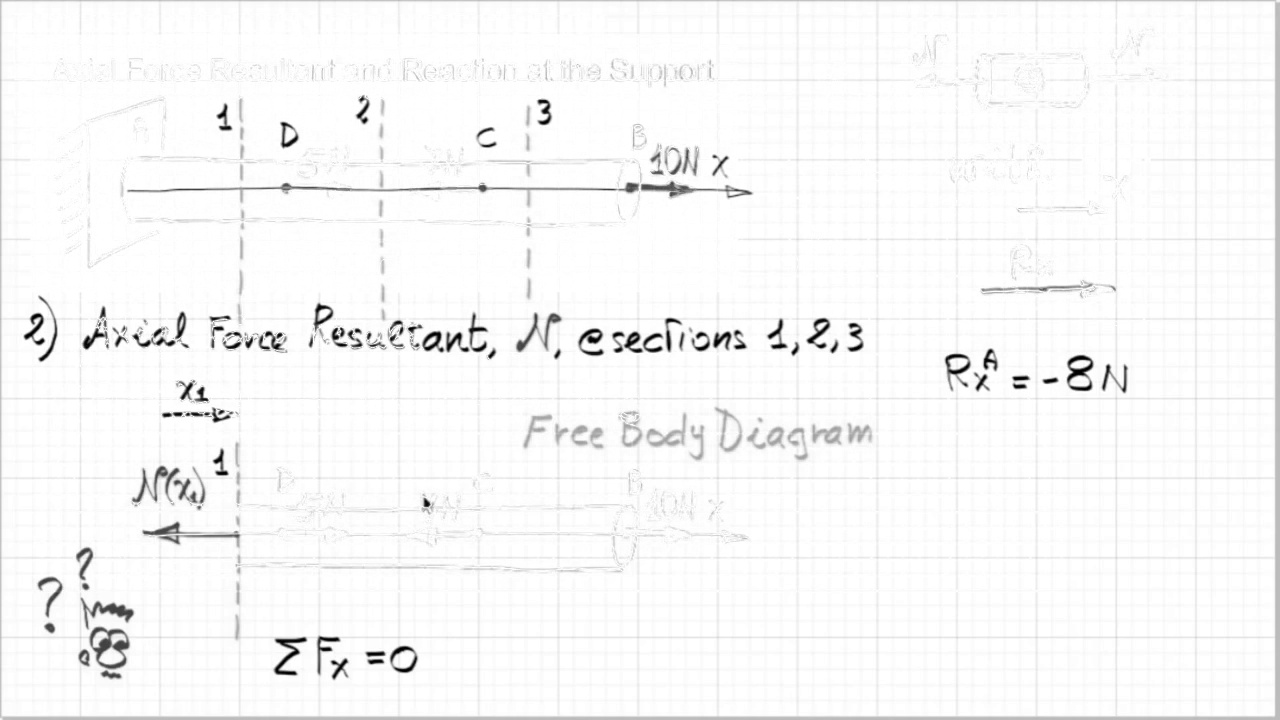 Axial Force Resultant and Reaction at the Support
N N
A 1 D 2 C 3 B
5N 10N x
x
Rx
2) Axial Force Resultant, N, @sections 1,2,3
RxA = -8N
x1
Free Body Diagram
N(x1) 1 D C B
5N 10N x
? ?
ΣFx = 0